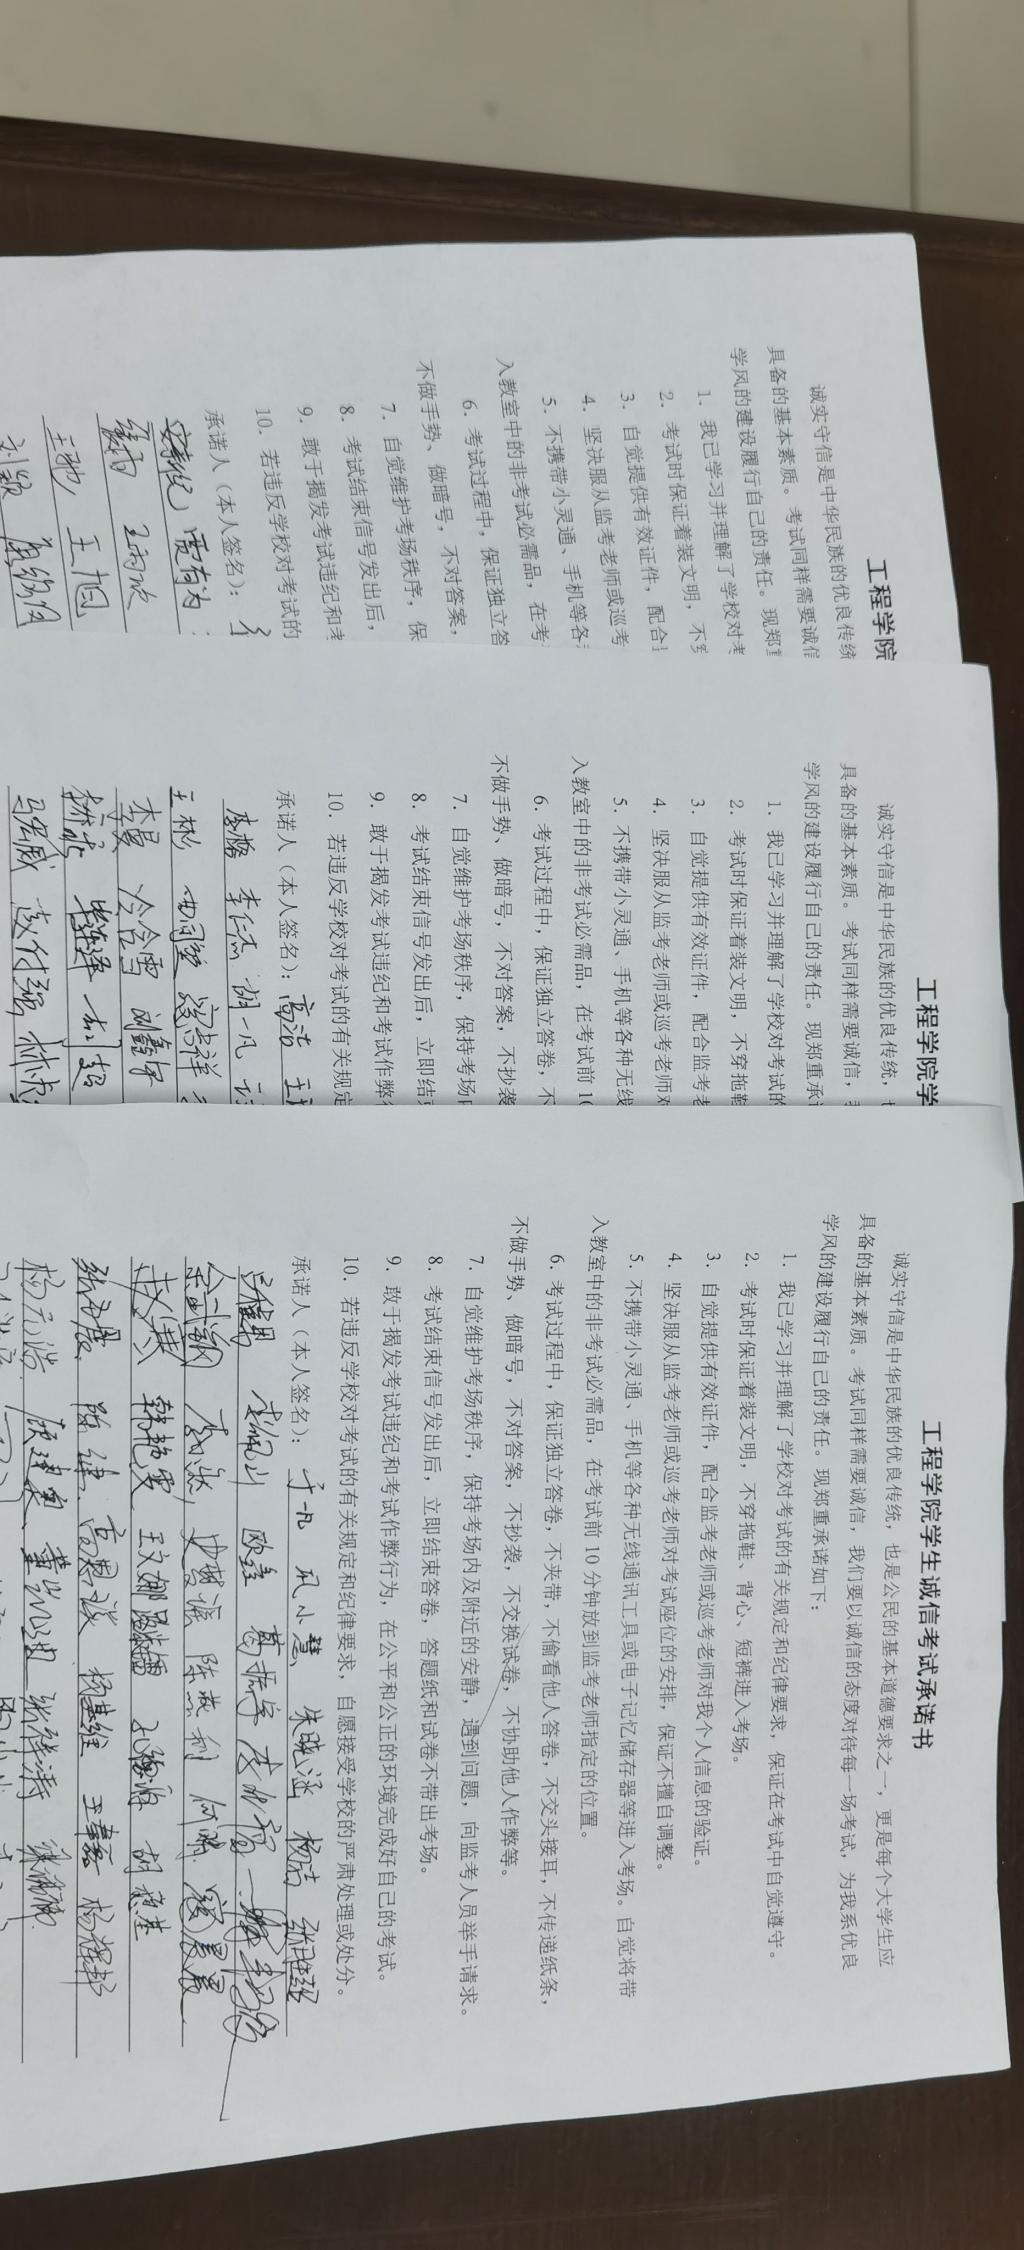 工程学院
诚实守信是中华民族的优良传统
具备的基本素质。考试同样需要诚信
学风的建设履行自己的责任。现郑重
1. 我已学习并理解了学校对考
2. 考试时保证着装文明，不穿
3. 自觉提供有效证件，配合
4. 坚决服从监考老师或巡考
5. 不携带小灵通、手机等各
入教室中的非考试必需品，在考
6. 考试过程中，保证独立答
不做手势、做暗号，不对答案，
7. 自觉维护考场秩序，保
8. 考试结束信号发出后，
9. 敢于揭发考试违纪和考
10. 若违反学校对考试的
承诺人（本人签名）：
贾有为
王旭
刘颖
工程学院学
诚实守信是中华民族的优良传统，
具备的基本素质。考试同样需要诚信，
学风的建设履行自己的责任。现郑重承
1. 我已学习并理解了学校对考试的
2. 考试时保证着装文明，不穿拖鞋
3. 自觉提供有效证件，配合监考老
4. 坚决服从监考老师或巡考老师对
5. 不携带小灵通、手机等各种无线
入教室中的非考试必需品，在考试前 10
6. 考试过程中，保证独立答卷，不
不做手势、做暗号，不对答案，不抄袭
7. 自觉维护考场秩序，保持考场
8. 考试结束信号发出后，立即结
9. 敢于揭发考试违纪和考试作弊
10. 若违反学校对考试的有关规定
承诺人（本人签名）：高洁
李仁杰 胡一凡
王彬
李曼 冷含雪
赵付强
工程学院学生诚信考试承诺书
诚实守信是中华民族的优良传统，也是公民的基本道德要求之一，更是每个大学生应
具备的基本素质。考试同样需要诚信，我们要以诚信的态度对待每一场考试，为我系优良
学风的建设履行自己的责任。现郑重承诺如下：
1. 我已学习并理解了学校对考试的有关规定和纪律要求，保证在考试中自觉遵守。
2. 考试时保证着装文明，不穿拖鞋、背心、短裤进入考场。
3. 自觉提供有效证件，配合监考老师或巡考老师对我个人信息的验证。
4. 坚决服从监考老师或巡考老师对考试座位的安排，保证不擅自调整。
5. 不携带小灵通、手机等各种无线通讯工具或电子记忆储存器等进入考场。自觉将带
入教室中的非考试必需品，在考试前 10 分钟放到监考老师指定的位置。
6. 考试过程中，保证独立答卷，不夹带，不偷看他人答卷，不交头接耳，不传递纸条，
不做手势、做暗号，不对答案，不抄袭，不交换试卷，不协助他人作弊等。
7. 自觉维护考场秩序，保持考场内及附近的安静，遇到问题，向监考人员举手请求。
8. 考试结束信号发出后，立即结束答卷，答题纸和试卷不带出考场。
9. 敢于揭发考试违纪和考试作弊行为，在公平和公正的环境完成好自己的考试。
10. 若违反学校对考试的有关规定和纪律要求，自愿接受学校的严肃处理或处分。
承诺人（本人签名）：于一凡 凤小慧 朱晓涵 杨洁
葛振宇
陈燕利
韩艳雯 王文娜
陈健 杨基维 王嘉
杨元浩